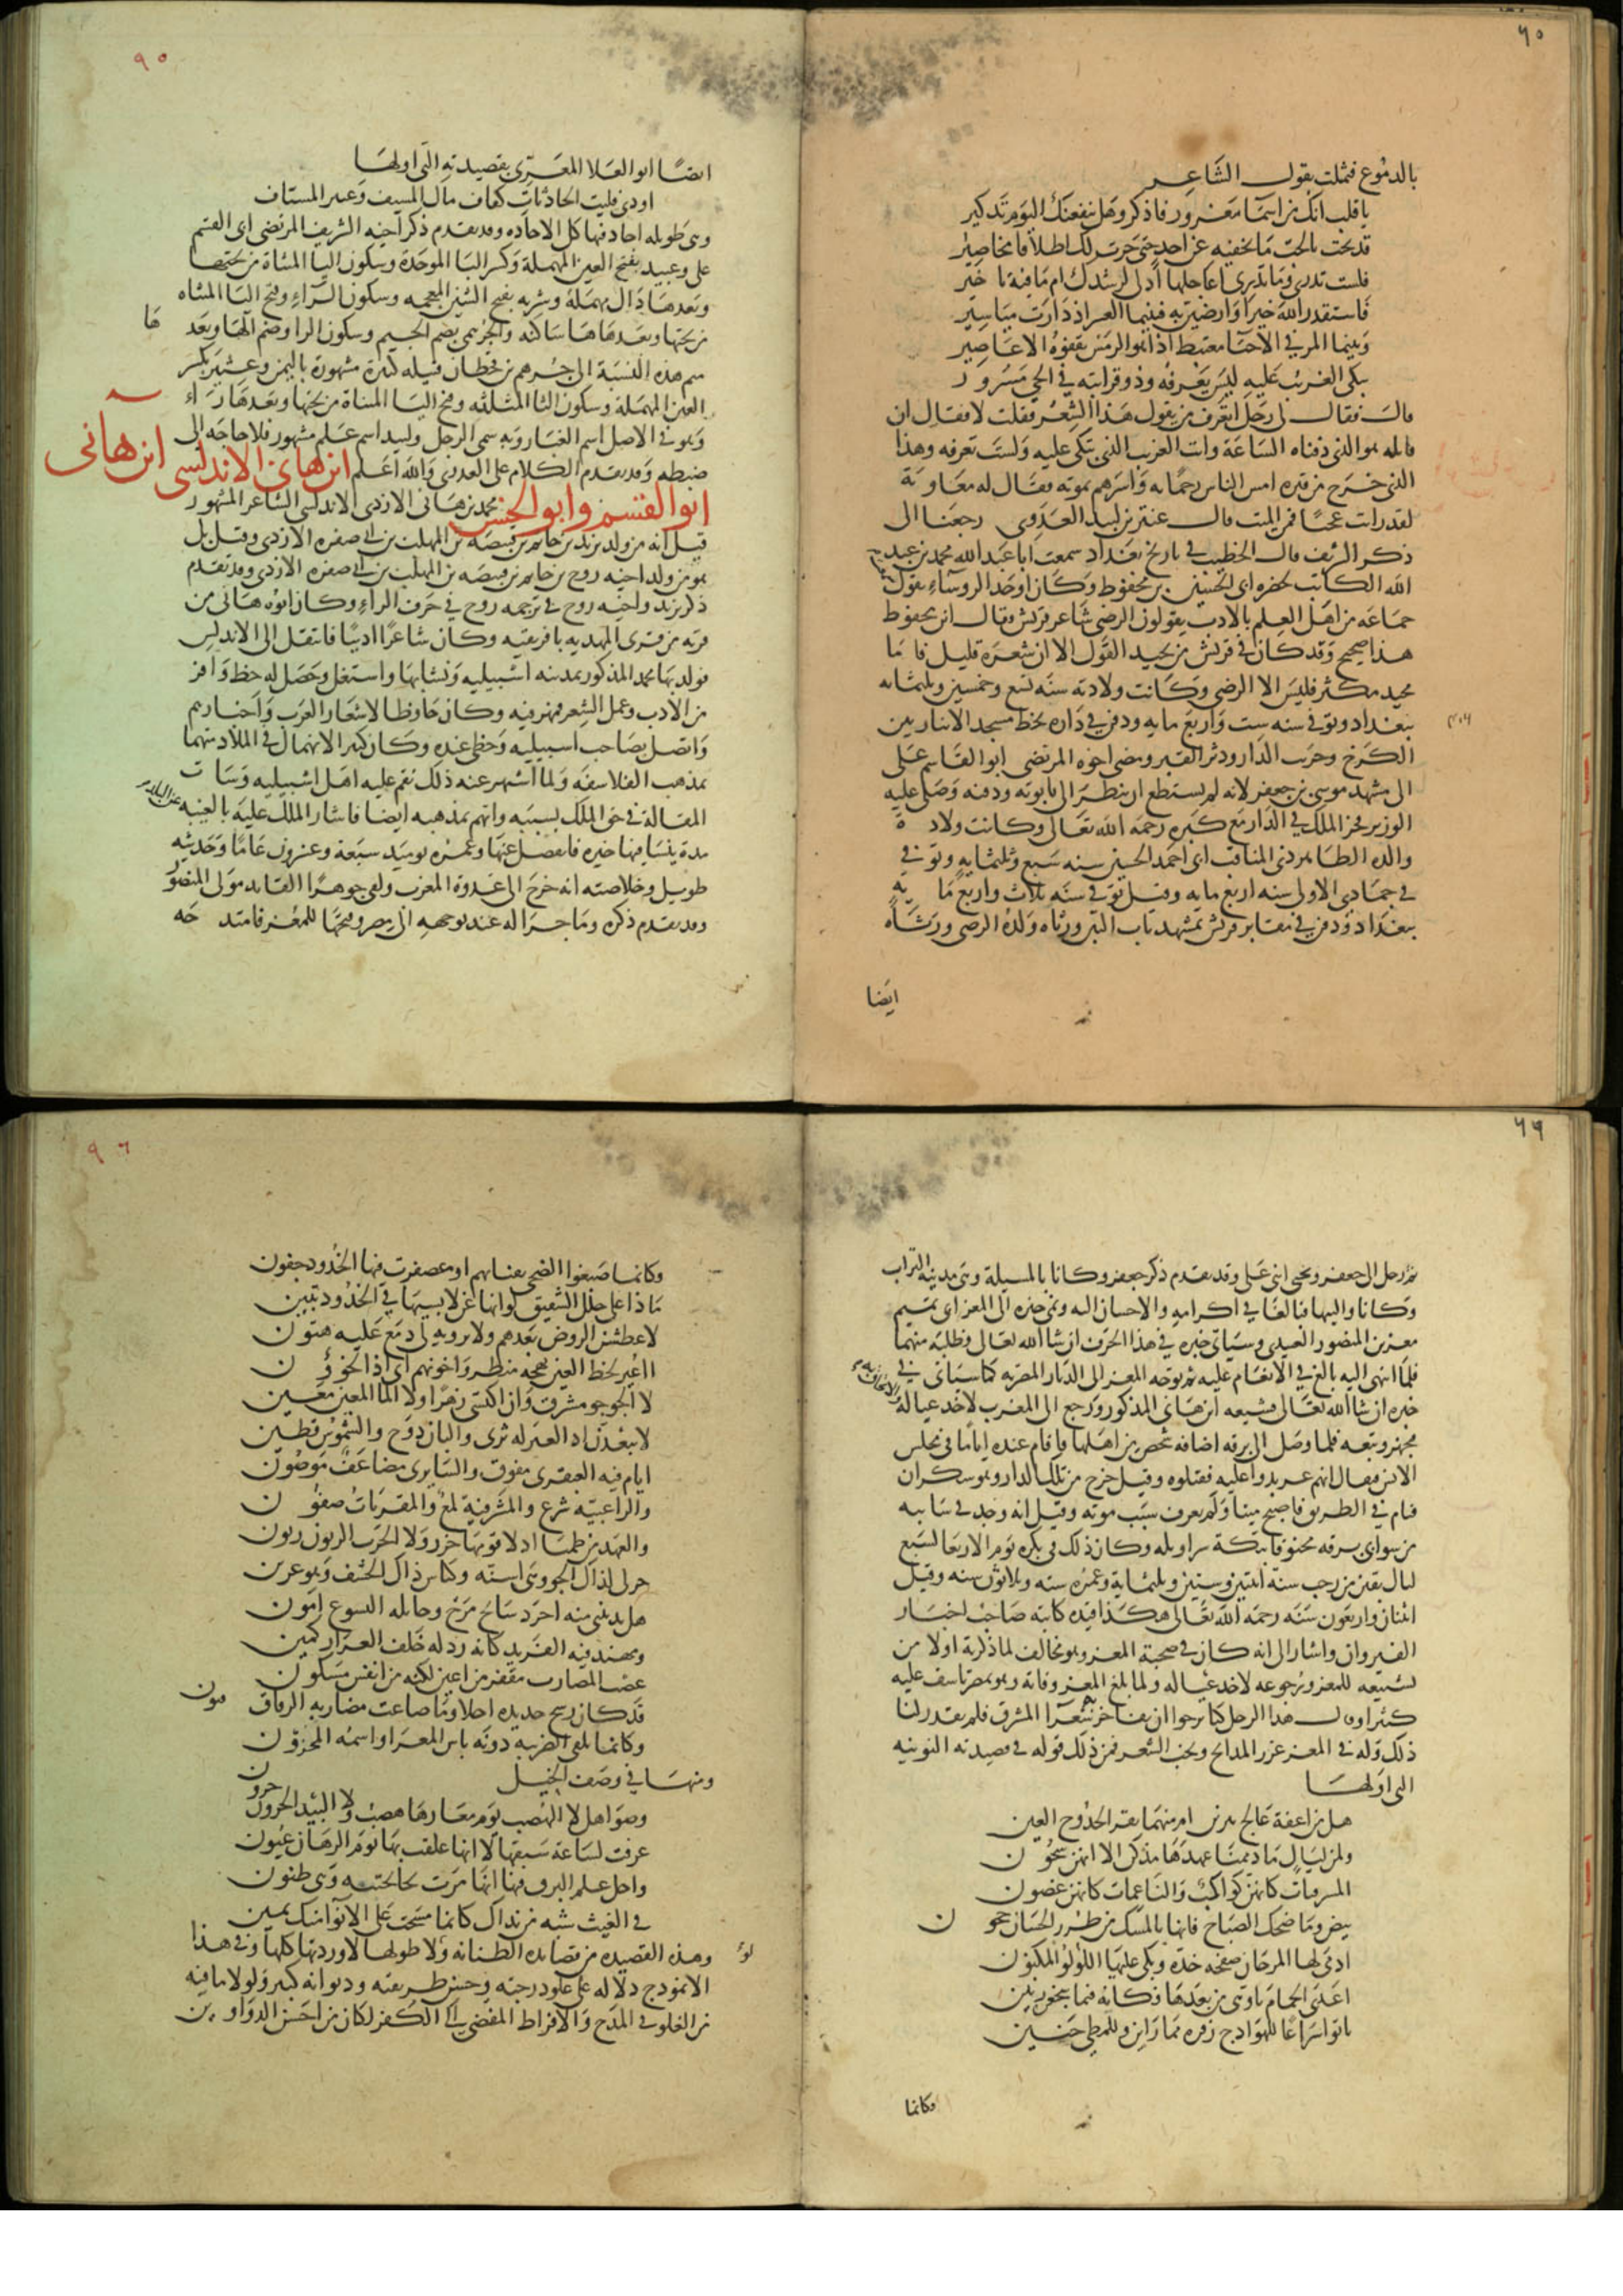 ٦٥
بالدموع فتمثلت بقول الشاعر
يا قلب انك من اسما مغرور فاذكر وهل ينفعنك اليوم تذكير
قد بحت بالحب ما تخفيه عن احد حتى جرت لك اطلاقا محاضير
فلست تدري وما تدري اعاجلها ادنى لرشدك ام ما فيه تاخير
فاستقدر الله خيرا وارضين به فبينما العسر اذ دارت مياسير
وبينما المرء في الاحيا مغتبط اذا هو الرمس تعفوه الاعاصير
يبكي الغريب عليه ليس يعرفه وذو قرابته في الحي مسرور
قال فقال لي رجل اتعرف من يقول هذا الشعر فقلت لا فقال ان
قايله هو الذي دفناه الساعة وانت الغريب الذي تبكي عليه ولست تعرفه وهذا
الذي خرج من قبره امس الناس رحما به واسرهم بموته فقال له معاوية
لقد رايت عجبا فمن الميت قال عثير بن لبيد العذري رجعنا الى
ذكر الشريف قال الخطيب في تاريخ بغداد سمعت ابا عبد الله محمد بن عبد
الله الكاتب بحضرة ابي الحسين بن محفوظ وكان اوحد الروساء يقول سمعت
جماعه من اهل العلم بالادب يقولون الرضي شاعر قريش فقال ابن محفوظ
هذا صحيح وقد كان في قريش من يجيد القول الا ان شعره قليل فاما
مجيد مكثر فليس الا الرضي وكانت ولادته سنه تسع وخمسين وثلثمايه
ببغداد وتوفي في سنه ست واربع مايه ودفن في داره بخط مسجد الانباريين
الكرخ وخربت الدار ودثر القبر ومضى اخوه المرتضى ابو القاسم على
الى مشهد موسى بن جعفر لانه لم يستطع ان ينظر الى تابوته ودفنه وصلى عليه
الوزير فخر الملك في الدار مع كبيره رحمه الله تعالى وكانت ولادة
والده الطاهر ذي المناقب ابي احمد الحسين سنه سبع وثلثمايه وتوفي
في جمادي الاولى سنه اربع مايه وقيل توفي في سنه ثلاث واربع مايه
ببغداد ودفن في مقابر قريش بمشهد باب التين ورثاه ولده الرضي ورثاه
ايضا
٩٥
ايضا ابو العلا المعري بقصيدته التي اولها
اودى فليت الحادثات كفاف مال المسيف وعنبر المستاف
وهي طويله اجاد فيها كل الاجاده وقد تقدم ذكر اخيه الشريف المرتضى ابي القسم
علي وعبيد بفتح العين المهملة وكسر البا الموحدة وسكون اليا المثناة من تحتها
وبعدها دال مهملة وشريه بفتح الشين المعجمه وسكون الراء وفتح اليا المثناه
من تحتها وبعدها ها ساكنه والجرهمي بضم الجيم وسكون الرا وضم الها وبعدها
ميم هذه النسبة الى جرهم بن قحطان قبيله كبيرة مشهورة باليمن وعثير بكسر
العين المهملة وسكون الثا المثلثه وفتح اليا المثناة من تحتها وبعدها راء
وهو في الاصل اسم الغبار وبه سمي الرجل ولبيد اسم علم مشهور فلا حاجه الى
ضبطه وقد تقدم الكلام على العذري والله اعلم ابن هاني الاندلسي
ابن هانى
ابو القسم وابو الحسن محمد بن هاني الازدي الاندلسي الشاعر المشهور
قيل انه من ولد يزيد بن حاتم بن قبيصه بن المهلب بن ابي صفره الازدي وقيل بل
هو من ولد اخيه روح بن حاتم بن قبيصه بن المهلب بن ابي صفره الازدي وقد تقدم
ذكر يزيد واخيه روح في ترجمه روح في حرف الراء وكان ابوه هاني من
قريه من قرى المهديه بافريقيه وكان شاعرا اديبا فانتقل الى الاندلس
فولد بها محمد المذكور بمدينه اشبيليه ونشا بها واستغل وحصل له حظ وافر
من الادب وعمل الشعر فمهر فيه وكان حافظا لاشعار العرب واخبارهم
واتصل بصاحب اشبيليه وحظي عنده وكان كثير الانهماك في الملاذ متهما
بمذهب الفلاسفه ولما اشتهر عنه ذلك نقم عليه اهل اشبيليه وساءت
المقالة في حق الملك بسببه واتهم بمذهبه ايضا فاشار الملك عليه بالغيبه عن البلد
مدة ينسا فيها خبره فانفصل عنها وعمره يوميذ سبعة وعشرون عاما وحديثه
طويل وخلاصته انه خرج الى عدوة المغرب ولقي جوهرا القايد مولى المنصور
وقد تقدم ذكره وما جرا له عند توجهه الى مصر وفتحها للمعز فامتدحه
٦٦
ثم رحل الى جعفر ويحيى ابني علي وقد تقدم ذكر جعفر وكانا بالمسيلة وهي مدينه الزاب
وكانا واليها فبالغا في اكرامه والاحسان اليه ونمي خبره الى المعز ابي تميم
معد بن المنصور العبيدي وسياتي خبره في هذا الحرف ان شا الله تعالى وطلبه منهما
فلما انتهى اليه بالغ في الانعام عليه ثم توجه المعز الى الديار المصريه كما سياتي في
خبره ان شا الله تعالى فشيعه ابن هاني المذكور ورجع الى المغرب لاخذ عياله والالتحاق به
فتجهز وتبعه فلما وصل الى برقه اضافه شخص من اهلها فاقام عنده اياما في مجلس
الانس فيقال انهم عربدوا عليه فقتلوه وقيل خرج من تلك الدار وهو سكران
فنام في الطريق فاصبح ميتا ولم يعرف سبب موته وقيل انه وجد في سانيه
من سواني برقه مخنوقا بتكة سراويله وكان ذلك في بكره يوم الاربعا لسبع
ليال بقين من رجب سنة اثنتين وستين وثلثماية وعمره سته وثلاثون سنه وقيل
اثنان واربعون سنه رحمه الله تعالى هكذا قيده كاتبه صاحب اخبار
القيروان واشار الى انه كان في صحبة المعز وهو مخالف لما ذكرته اولا من
تشييعه للمعز ورجوعه لاخذ عياله ولما بلغ المعز وفاته وهو بمصر تاسف عليه
كثيرا وقال هذا الرجل كنا نرجوا ان نفاخر به شعرآ المشرق فلم يقدر لنا
ذلك وله في المعز غرر المدايح ونخب الشعر فمن ذلك قوله في قصيدته النونيه
التي اولها
هل من اعقة عالج يبرين ام منهما بقر الحدوج العين
ولمن ليال ما ذممنا عهدها مذ كن الا انهن شجون
المشرقات كانهن كواكب والناعمات كانهن غصون
بيض وما ضحك الصباح فانها بالمسك من طرر الحسان جون
ادمى لها المرجان صفحه خده وبكى عليها اللولو المكنون
اعدى الحمام تاوهي من بعدها فكانه فيما سجعن رنين
بانوا سراعا للهوادج زفره مما راين وللمطي حنين
وكانما
٩٦
وكانما صبغوا الضحى بقبابهم او عصفرت فيها الخدود جفون
ماذا على حلل الشقيق لو انها عن لابسيها في الخدود تبين
لاعطشن الروض بعدهم ولا يرويه لي دمع عليه هتون
ااعير لحظ العين بهجه منظر واخونهم اني اذا لخؤون
لا الجو جو مشرق وان اكتسى زهرا ولا الما المعين معين
لا يبعدن اذ العبير له ثرى والبان دوح والشموس قطين
ايام فيه العبقري مفوف والسابري مضاعف موضون
والزاعبيه شرع والمشرفية لمع والمقربات صفون
والعهد من ظميا اذ لا قومها خزر ولا الحرب الزبون زبون
حزني لذاك الجو وهي اسنه وكناس ذاك الخشف وهو عرين
هل يدنيني منه اجرد سابح مرح وجايله النسوع امون
ومهند فيه الفرند كانه رد له خلف الغرار كمين
عضب المضارب مقفر من اعين لكنه من انفس مسكون
قد كان رشح حديده اجلا وما صاغت مضاربه الرقاق قيون
وكانما يلقى الضريبه دونه باس المعز او اسمه المخزون
ومنها في وصف الخيل
وصواهل لا الهضب يوم مغارها هضب ولا البيد الحزون حزون
عرفت بساعة سبقها لا انها علقت بها يوم الرهان عيون
واجل علم البرق فيها انها مرت بجانحتيه وهي ظنون
في الغيث شبه من نداك كانما مسحت على الانوآ منك يمين
وهذه القصيده من قصايده الطنانه ولولا طولها لاوردتها كلها وفي هذا
الانموذج دلاله على علو درجته وحسن طريقته وديوانه كبير ولولا ما فيه
من الغلو في المدح والافراط المفضي الى الكفر لكان من احسن الدواوين